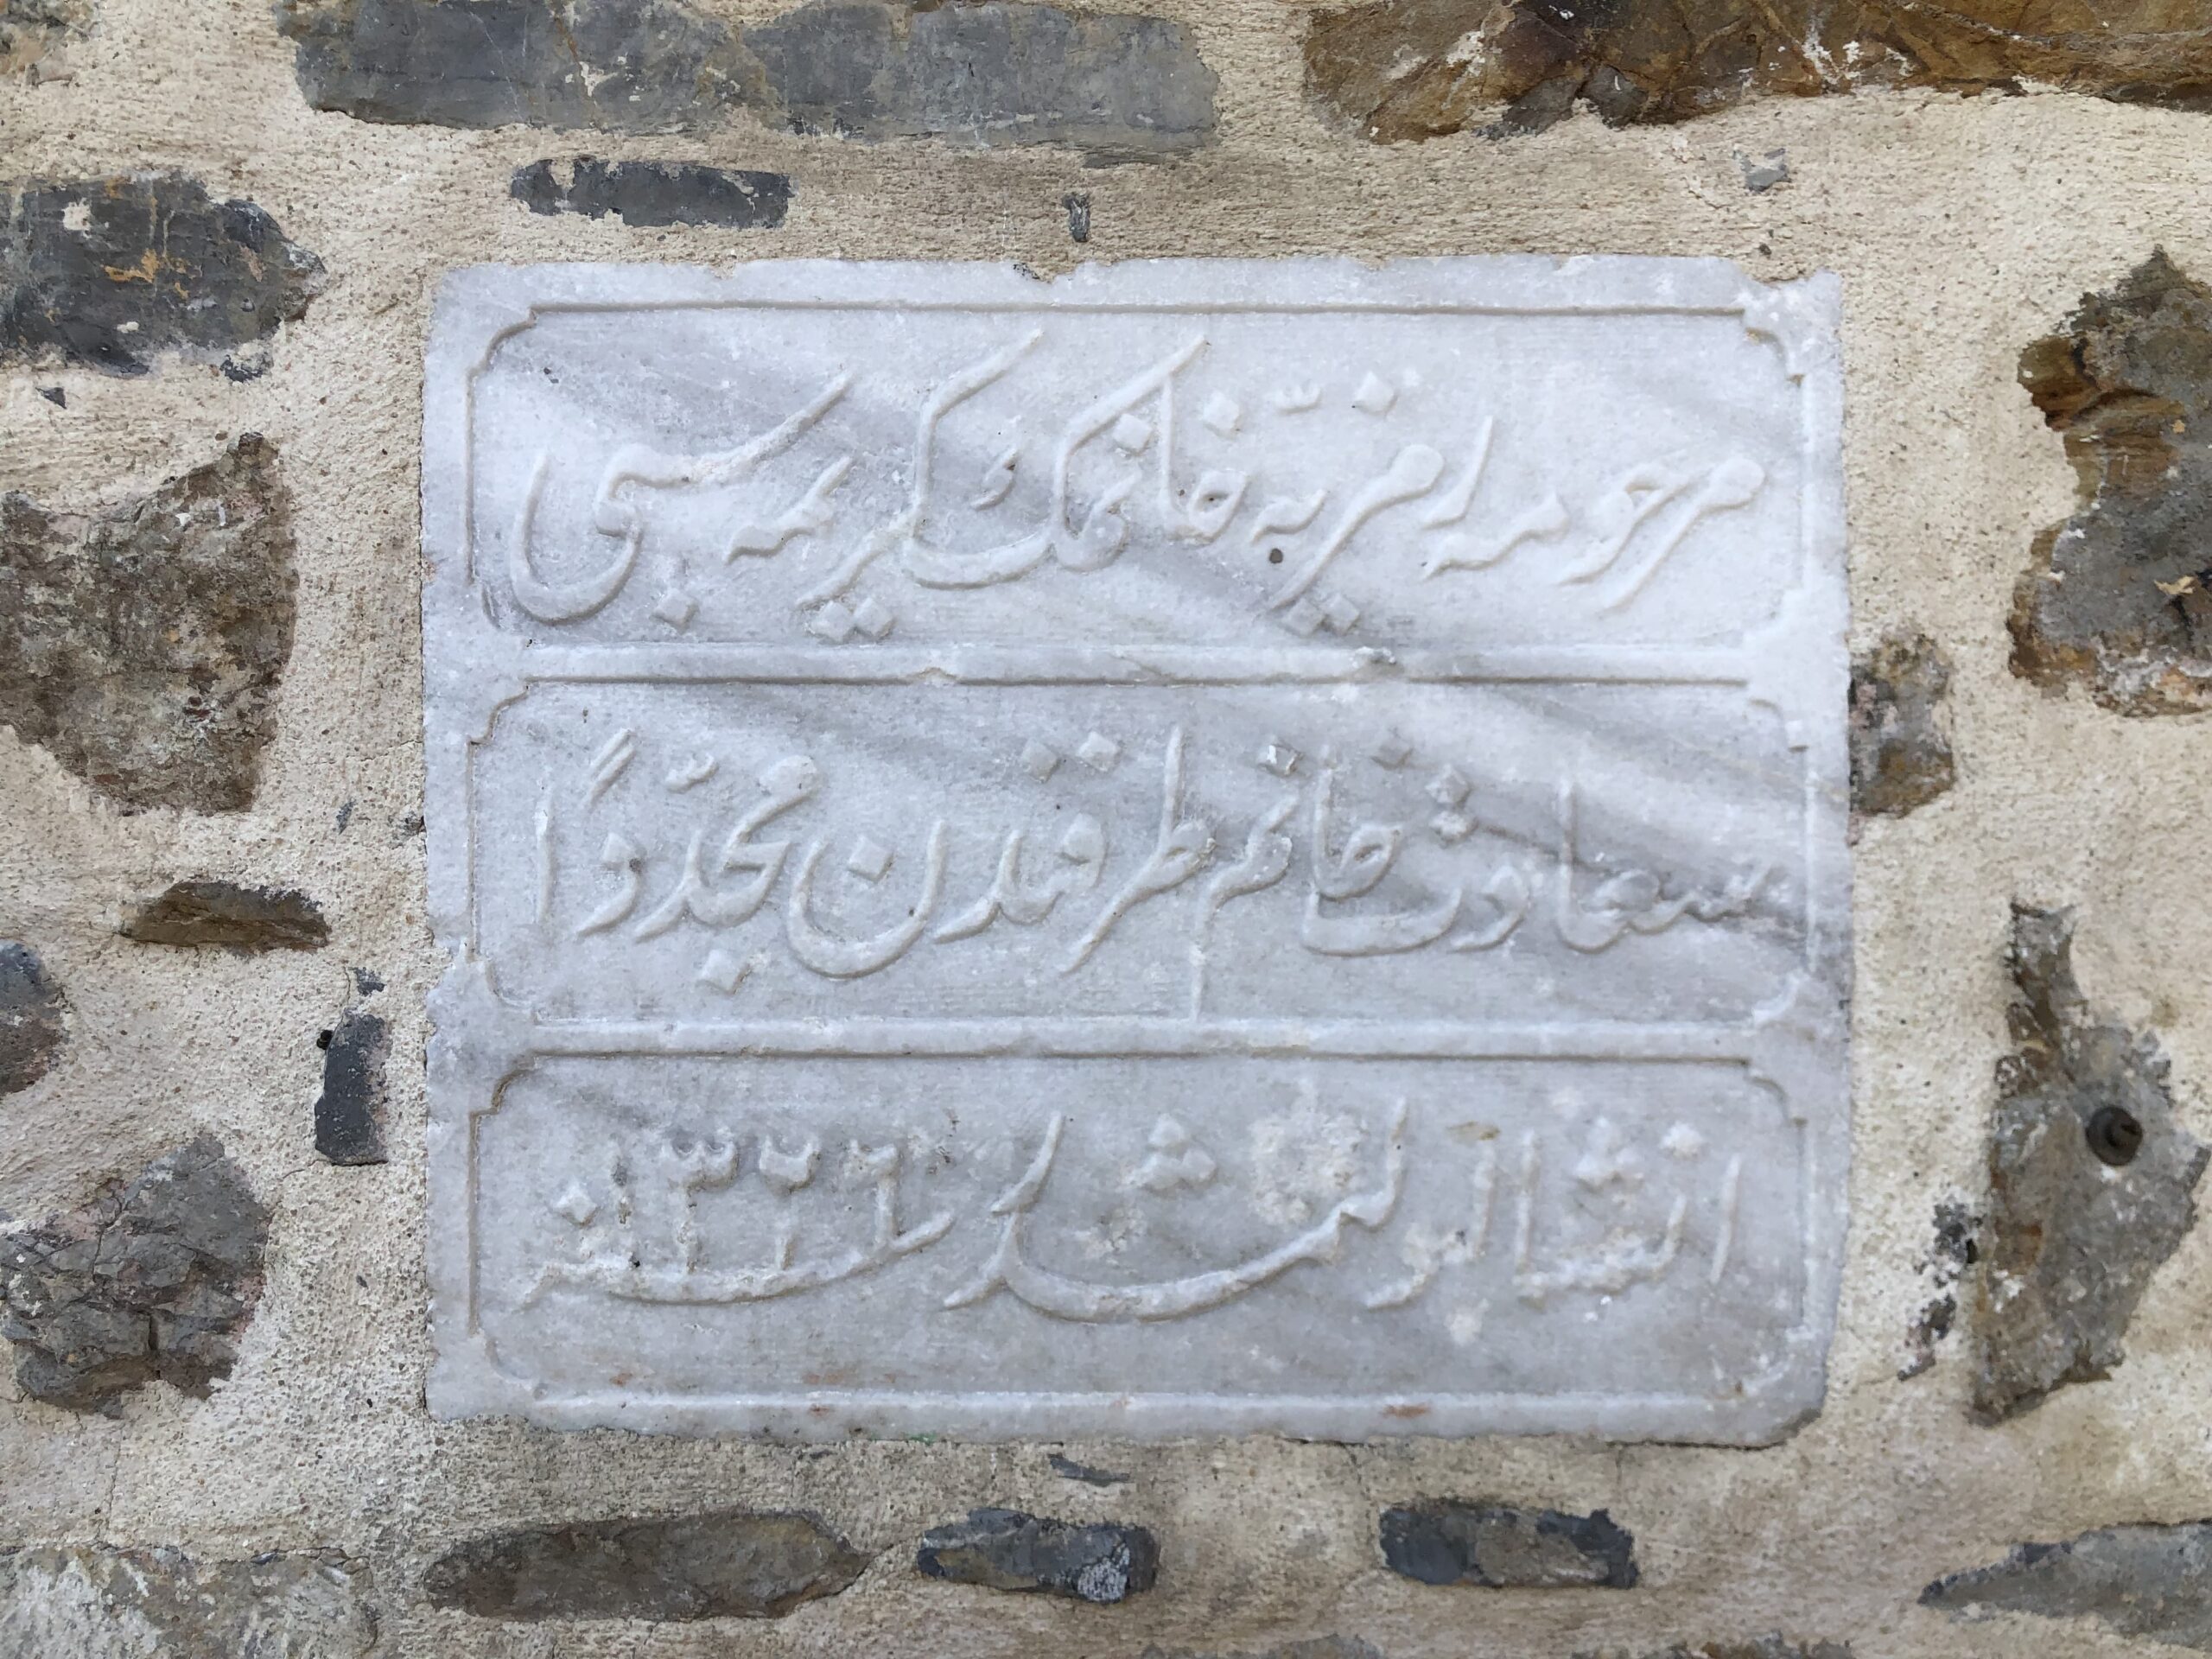 مرحومه رمزیّه خانمك كریمه‌سی
سعادت خانم طرفندن مجدّدًا
انشا اولنمشدر سنه ١٣٢٦